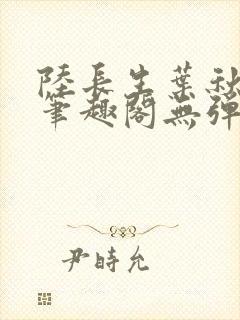 陸長生葉秋
筆趣閣無彈
尹時允